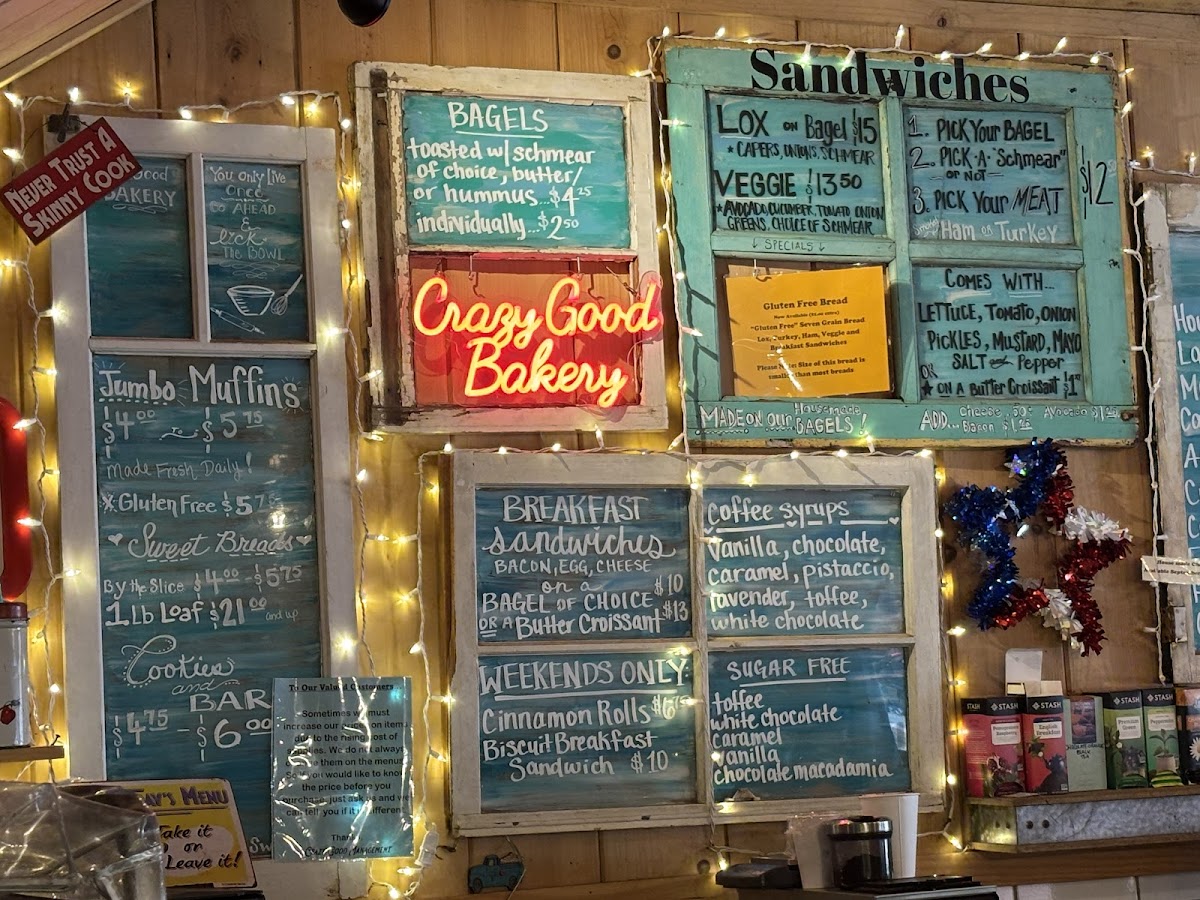 NEVER TRUST A
SKINNY COOK
Good
BAKERY
"You only live
once
GO AHEAD
&
lick
THE BOWL
Jumbo Muffins
$4.00 to $5.75
Made Fresh Daily!
Gluten Free $5.75
Sweet Breads
By the Slice $4.00 - $5.75
1 Lb Loaf $21.00 and up
Cookies
and
BAR
$4.75 - $6.00
To Our Valued Customers
Sometimes we must
increase our on items
due to the rising cost of
We do not always
them on the menu.
you would like to know
the price before you
purchase just ask us and we
can tell you if it different
MANAGEMENT
MENU
Take it
or
Leave it!
BAGELS
toasted w/ schmear
of choice, butter/
or hummus...$4.25
individually...$2.50
Crazy Good
Bakery
Sandwiches
LOX on Bagel $15
* CAPERS, ONIONS, SCHMEAR
VEGGIE $13.50
* AVOCADO, CUCUMBER, TOMATO ONION
GREENS, CHOICE OF SCHMEAR
↓ SPECIALS ↓
1. PICK YOUR BAGEL
2. PICK-A-"Schmear"
OR NOT
3. PICK YOUR MEAT
Ham or Turkey
$12
Gluten Free Bread
"Gluten Free" Seven Grain Bread
Lox, Turkey, Ham, Veggie and
Breakfast Sandwiches
Please Note: Size of this bread is
smaller than most breads
COMES WITH...
LETTUCE, TOMATO, ONION
PICKLES, MUSTARD, MAYO
SALT and Pepper
OR
* ON A Butter Croissant $1
MADE ON OUR Housemade BAGELS!
ADD... Cheese .50¢ Avocado
Bacon
BREAKFAST
Sandwiches
BACON, EGG, CHEESE
on a
BAGEL OF CHOICE $10
OR A Butter Croissant $13
Coffee syrups
Vanilla, chocolate,
caramel, pistaccio,
lavender, toffee,
white chocolate
WEEKENDS ONLY
Cinnamon Rolls
Biscuit Breakfast
Sandwich $10
SUGAR FREE
toffee
white chocolate
caramel
vanilla
chocolate macadamia
STASH
STASH
English
Breakfast
STASH
STASH
Premium
Green
Peppermint